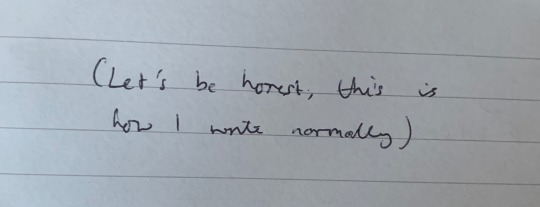 (Let's be honest, this is
how I write normally)